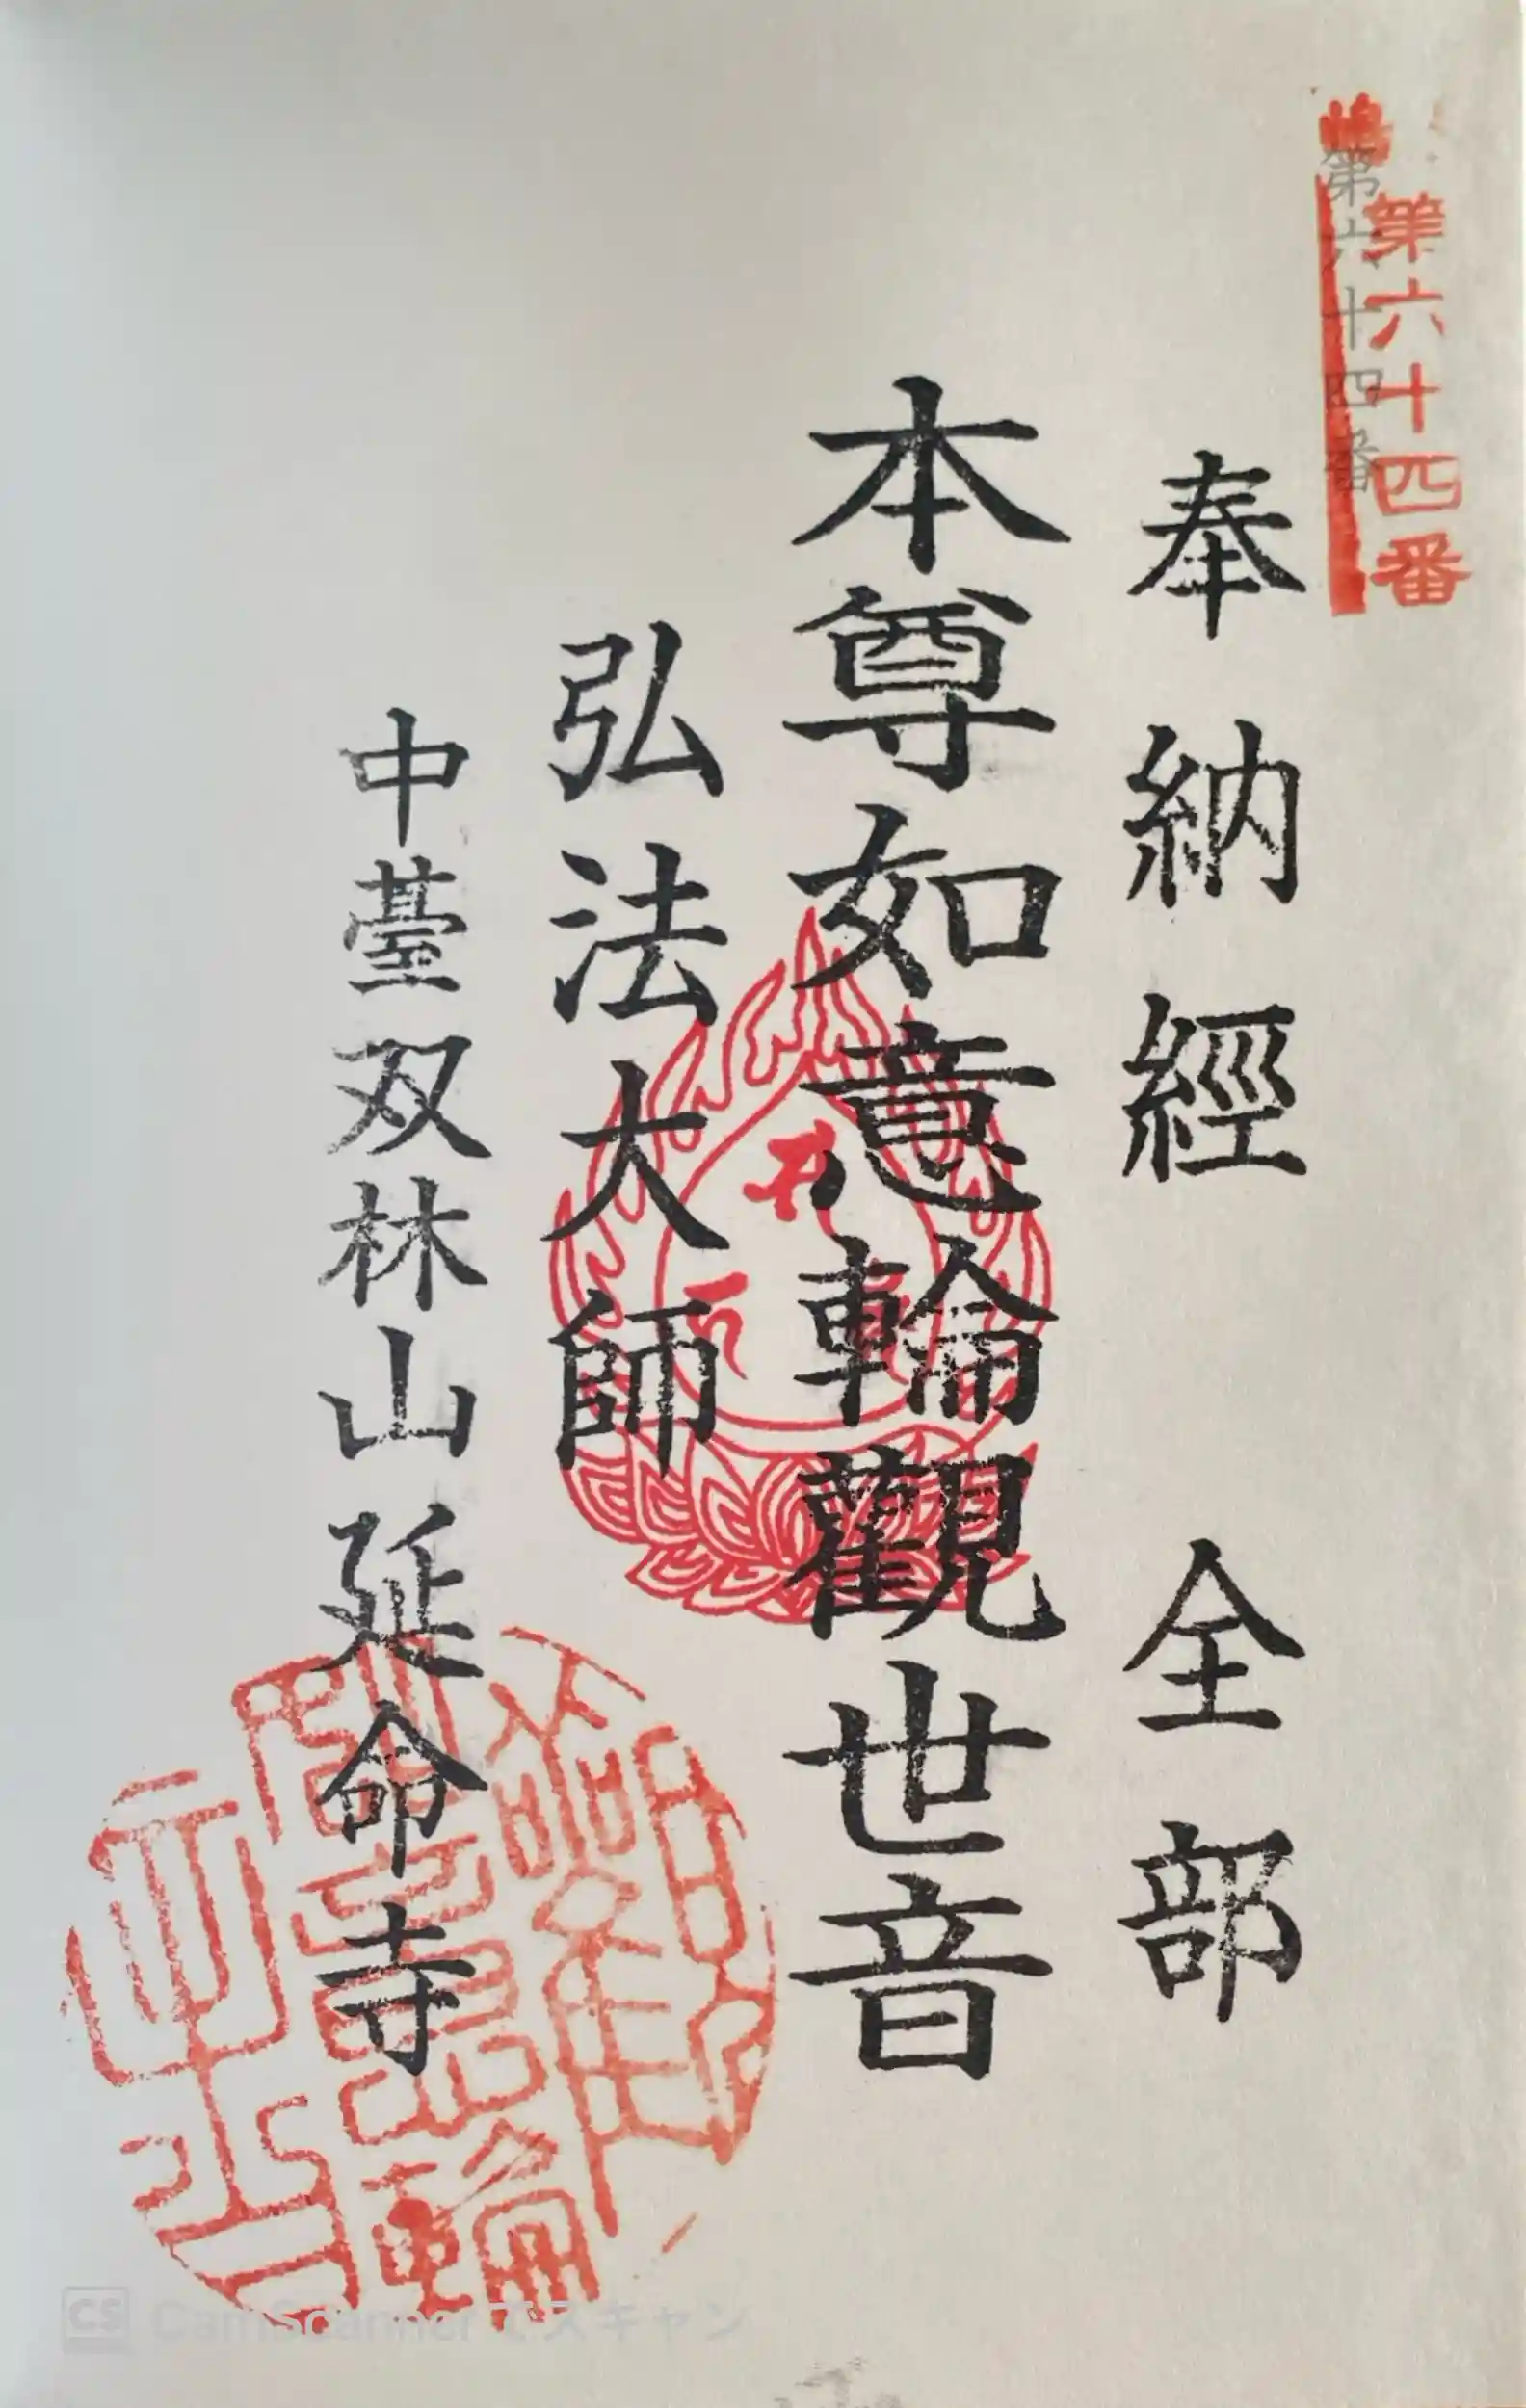 第六十四番
第六十四番
奉納經 全部
本尊如意輪觀世音
弘法大師
中臺双林山延命寺
CS CamScannerでスキャン